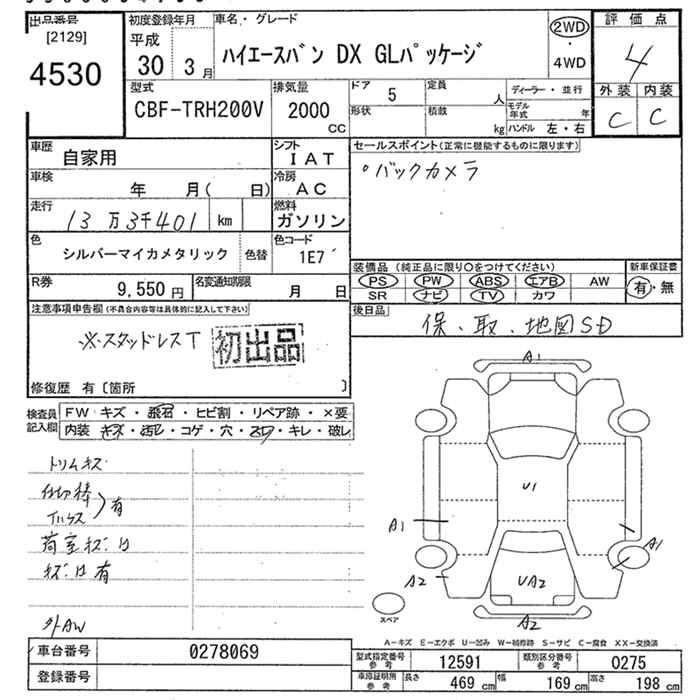 出品番号
[2129]
4530
初度登録年月
平成
30 3 月
車名・グレード
ハイエースバン DX GLパッケージ
2WD
・
4WD
評価点
4
外装 内装
C C
型式
CBF-TRH200V
排気量
2000
CC
ドア 5
形状
定員
人
積載
kg
ディーラー・並行
モデル
年式 年
ハンドル 左・右
車歴
自家用
シフト
IAT
車検
年 月( 日)
冷房
AC
走行
13万3千401 km
燃料
ガソリン
色
シルバーマイカメタリック
色替
色コード
1E7
R券
9,550円
名変通知期限
月 日
セールスポイント(正常に機能するものに限ります)
・バックカメラ
装備品 (純正品に限り○をつけてください)
PS PW ABS エアB AW
SR ナビ TV カワ
新車保証書
有・無
後日品
保、取、地図SD
注意事項申告欄(不具合内容等は具体的に記入して下さい)
※スタッドレスT
初出品
修復歴 有〔箇所 〕
検査員
記入欄
FW キズ・飛石・ヒビ割・リペア跡・×要
内装 キズ・汚レ・コゲ・穴・スレ・キレ・破レ
トリムキズ
仕切棒
有
荷室キズ
有
外AW
A1
U1
A1
A1
A2
UA2
A2
スペア
A-キズ E-エクボ U-凹み W-補修跡 S-サビ C-腐食 XX-交換済
車台番号
0278069
登録番号
型式指定番号
参考
12591
類別区分番号
参考
0275
車庫証明用
参考
長さ 469 cm 幅 169 cm 高さ 198 cm